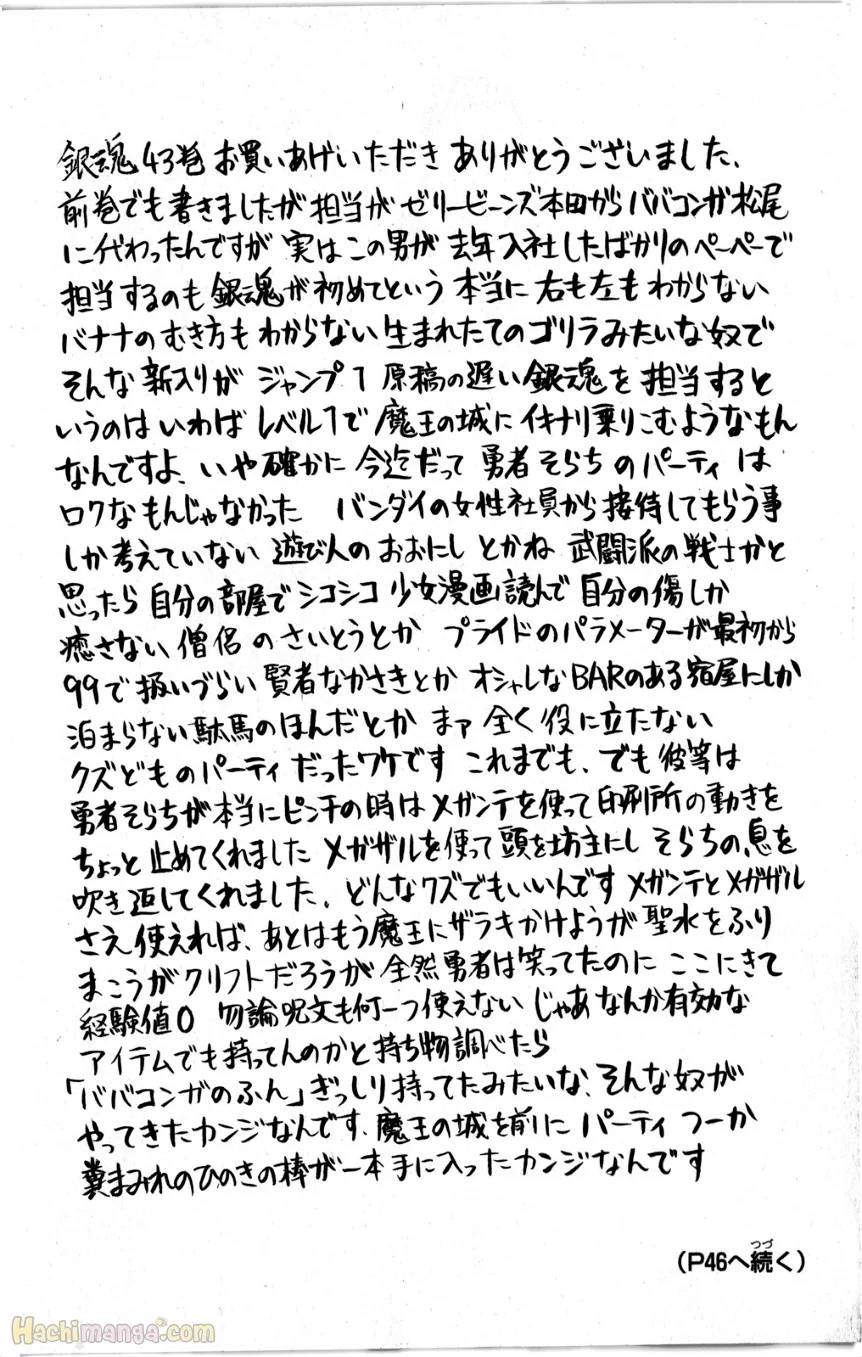 銀魂43巻 お買いあげいただき ありがとうございました、
前巻でも書きましたが 担当が ゼリービーンズ本田からババコンガ松尾
に代わったんですが 実はこの男が 去年入社したばかりのペーペーで
担当するのも 銀魂が初めてという 本当に 右も左もわからない
バナナのむき方もわからない 生まれたてのゴリラみたいな奴で
そんな 新入りが ジャンプ1 原稿の遅い銀魂を 担当すると
いうのは いわば レベル1で 魔王の城に イキナリ乗りこむようなもん
なんですよ、いや確かに 今迄だって 勇者そらちのパーティ は
ロクなもんじゃなかった バンダイの女性社員から接待してもらう事
しか考えていない 遊び人のおおにし とかね 武闘派の戦士かと
思ったら 自分の部屋でシコシコ 少女漫画読んで 自分の傷しか
癒さない 僧侶 のさいとうとか プライドのパラメーターが最初から
99で扱いづらい 賢者なかさきとか オシャレなBARのある宿屋にしか
泊まらない駄馬のほんだとか まァ 全く役に立たない
クズどものパーティ だったワケです これまでも、でも 彼等は
勇者そらちが本当にピンチの時は メガンテを使って印刷所の動きを
ちょっと 止めてくれました メガザルを使って頭を坊主にし そらちの息を
吹き返してくれました、どんなクズでもいいんです メガンテとメガザル
さえ使えれば、あとはもう魔王にザラキかけようが 聖水をふり
まこうがクリフトだろうが 全然勇者は笑ってたのに ここにきて
経験値0 勿論呪文も何一つ使えない じゃあなんか有効な
アイテムでも持ってんのかと持ち物調べたら
「ババコンガのふん」ぎっしり持ってたみたいな、そんな奴が
やってきたカンジなんです、魔王の城を前に パーティ つーか
糞まみれのひのきの棒が一本手に入ったカンジなんです
つづ
(P46へ続く)
Hachimanga.com